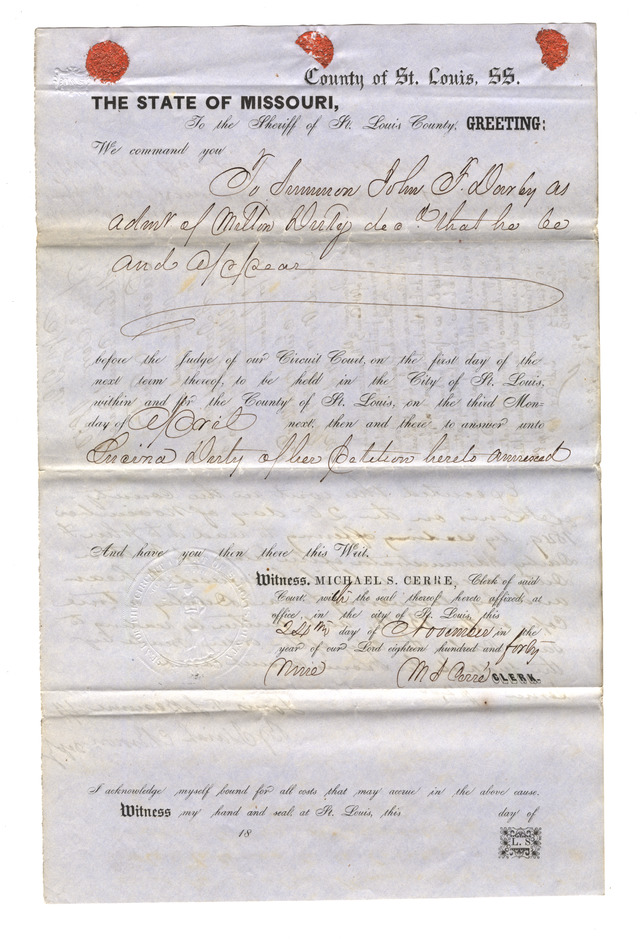 County of St. Louis, SS.
THE STATE OF MISSOURI,
To the Sheriff of St. Louis County, GREETING:
We command you
To Summon John F. Darby as
admr of Milton Duty decd that he be
and appear
before the Judge of our Circuit Court, on the first day of the
next term thereof, to be held in the City of St. Louis,
within and for the County of St. Louis, on the third Mon-
day of April next, then and there to answer unto
Duty of her Petition hereto annexed
And have you then there this Writ.
Witness, MICHAEL S. CERRE, Clerk of said
Court, with the seal thereof hereto affixed, at
office in the city of St. Louis, this
24th day of November in the
year of our Lord eighteen hundred and forty
Nine M S Cerré CLERK.
I acknowledge myself bound for all costs that may accrue in the above cause.
Witness my hand and seal, at St. Louis, this day of
18
L. S.